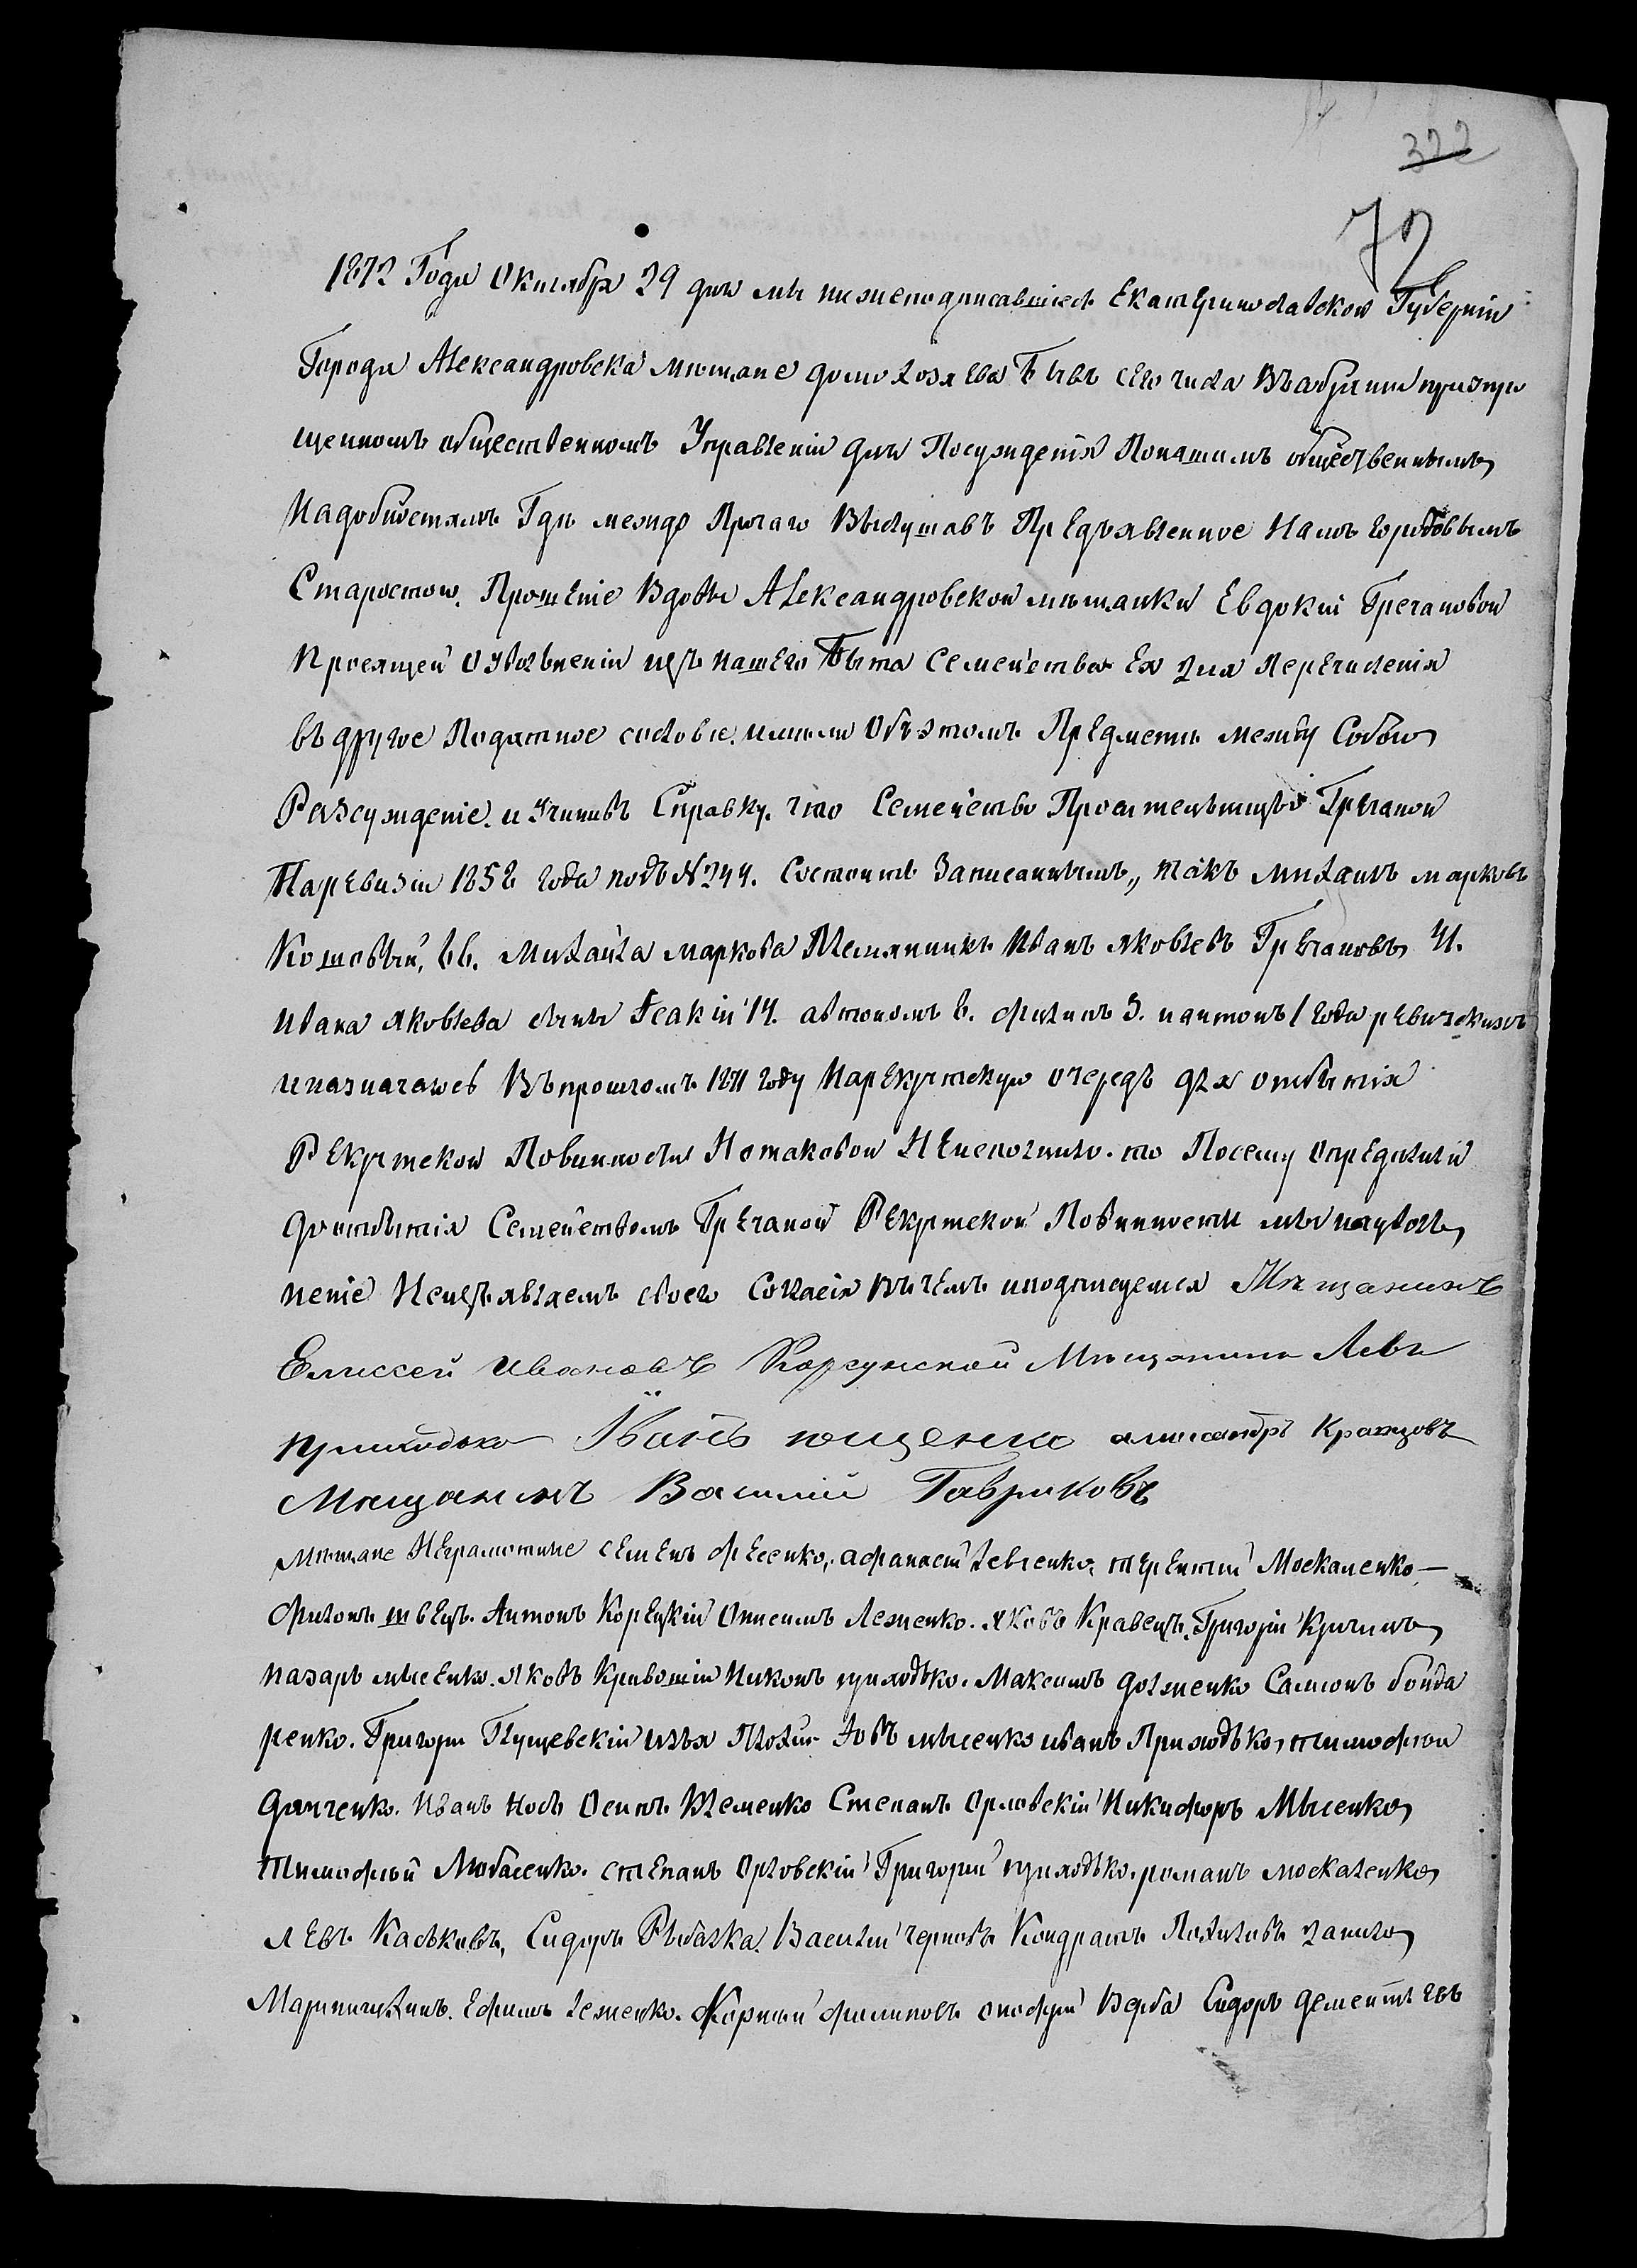 322
72
1872 Года Октября 29 дня мы нижеподписавшіеся Екатеринославской Губерніи
Города Александровска мѣщане домохозяева Бывъ сего числа Въ собраніи при упро
щенномъ общественномъ Управленіи для Посужденія Понашимъ общественнымъ
Надобностямъ Гдѣ между Прочаго Выслушавъ Предъявленное Намъ городовымъ
Старостою. Прошеніе Вдовы Александровской мѣщанки Евдокіи Гречановой
Просящей О увольненіи изъ нашего Быта Семейства Ея для Перечисленія
въ другое Податное сословіе. имѣли Объ этомъ Предметѣ между Собою
Разсужденіе. и Учинивъ Справку. что Семейство Просительницы Гречаной
Паревизіи 1858 года подъ № 244. Состоитъ Записаннымъ, такъ михаилъ марковъ
Кошовый, 66. Михайла маркова Племянникъ Иванъ яковлевъ Гречановъ, 41.
Ивана Яковлева сыны Исакій 14. автономъ 6. филипъ 3. и антонъ 1 года ревизскихъ
и назначаясь Въ прошломъ 1871 году На рекрутскую очередь для отбытія
Рекрутской Повинности Но таковой Неисполнило. то Посему Опредѣлили
до отбытія Семействомъ Гречаной Рекрутской Повинности мы на уволь
неніе Неизъявляемъ своего Согласія Въ чемъ и подписуемся Мѣщанинъ
Елисей Ивановъ Корсунской Мѣщанинъ Левъ
приходько Иванъ ющенко алисандръ Кравцовъ
Мѣщанинъ Василій Гавриковъ
Мѣщане Неграмотные семенъ фесенко, афанасій левченко, терентій Москаленко
филонъ швецъ. Антонъ Корецкій Онисимъ Леженко. яковъ Кравецъ, Григорій Кричинъ
назаръ мысенко. яковъ Кривошій Никонъ приходько. Максимъ долженко Самсонъ бонда
ренко. Григорій Глущевскій илья Плохій Іовъ мысенко иванъ Приходько, тимофѣй
данченко. Иванъ Носъ Осипъ Клеменко Степанъ Орловскій Никифоръ Мысенко,
Тимофѣй Любасенко. степанъ Орловскій Григорій приходько. романъ москаленко,
левъ Каськовъ, Сидоръ Рыбалка. Василій черновъ Кондратъ данило
Ефимъ леженко. Корнѣй филиповъ онофрій Верба Сидоръ дементьевъ